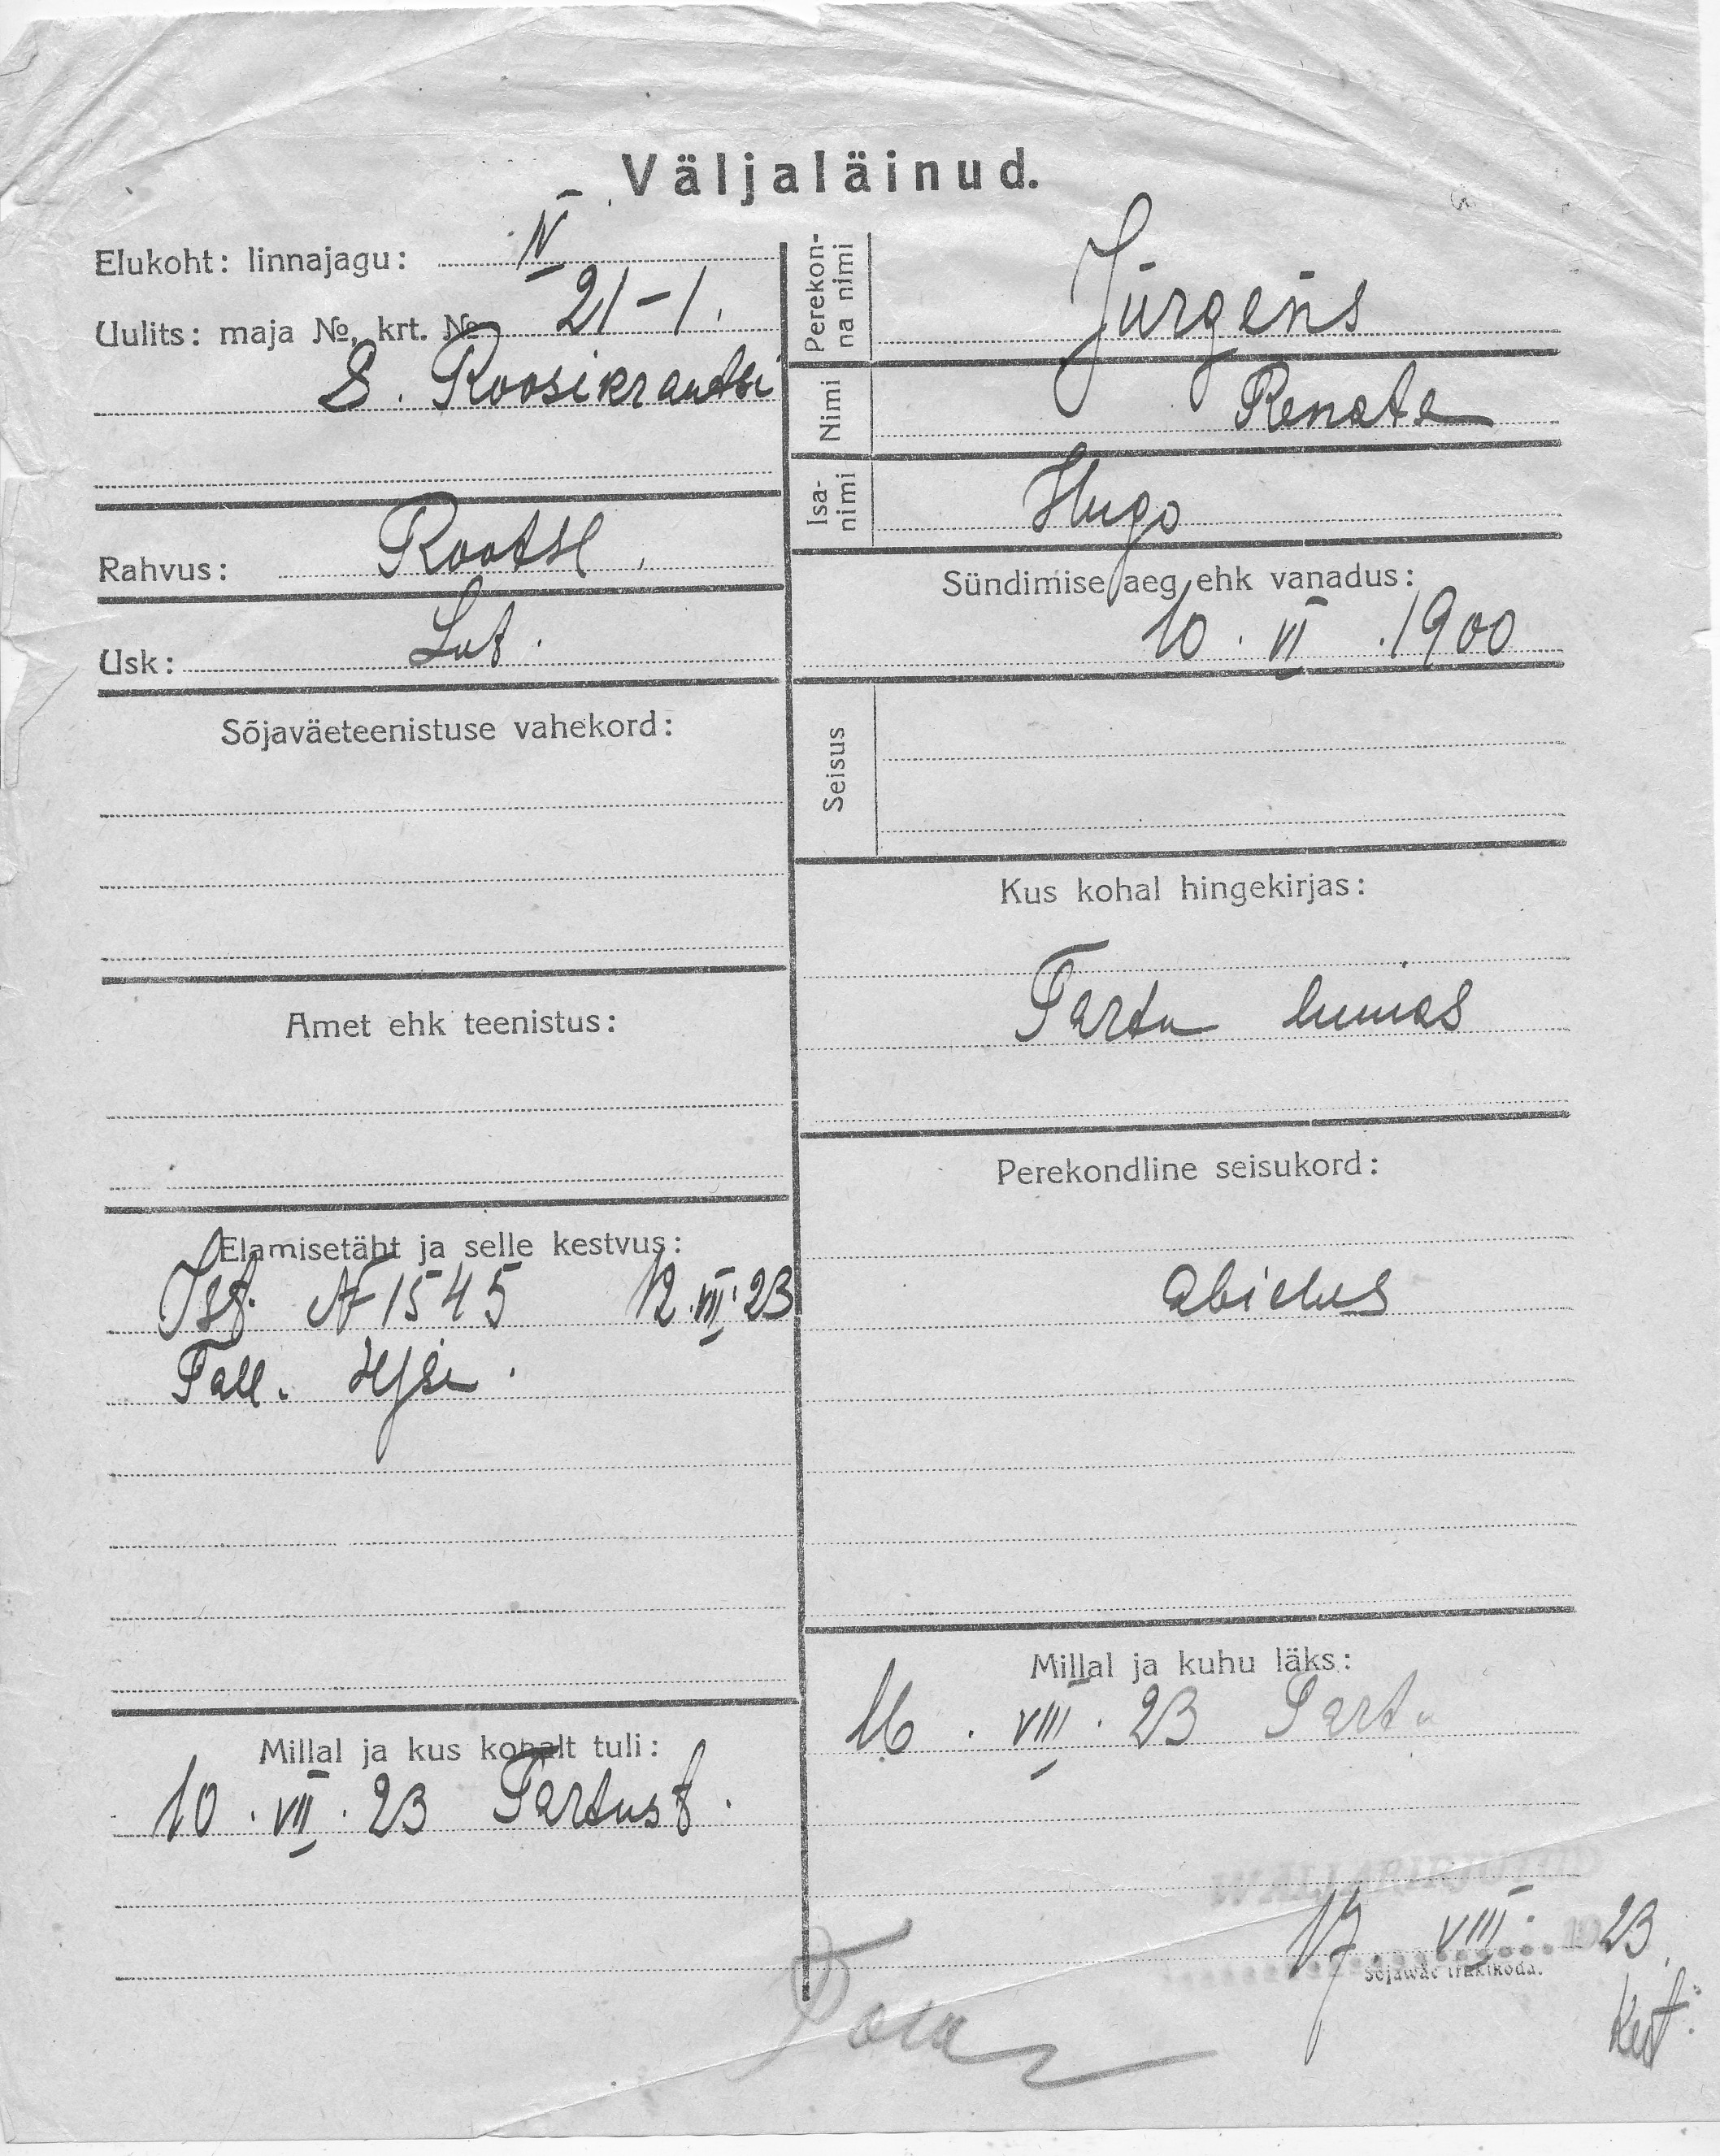 Väljaläinud.
Elukoht: linnajagu: IV
Uulits: maja №, krt. № 21-1.
S. Roosikrantsi
Rahvus: Rootsl.
Usk: Lut.
Sõjaväeteenistuse vahekord:
Amet ehk teenistus:
Elamisetäht ja selle kestvus:
Ist. № 1545 12.VII.23
Tall.
Millal ja kus kohalt tuli:
10.VII.23 Tartust.
Perekonna nimi Jürgens
Nimi Renate
Isanimi Hugo
Sündimise aeg ehk vanadus:
10.VI.1900
Seisus
Kus kohal hingekirjas:
Tartu linnas
Perekondline seisukord:
abielus
Millal ja kuhu läks:
16.VIII.23 Tartu
17.VIII.23.
Sõjawäe trükikoda.